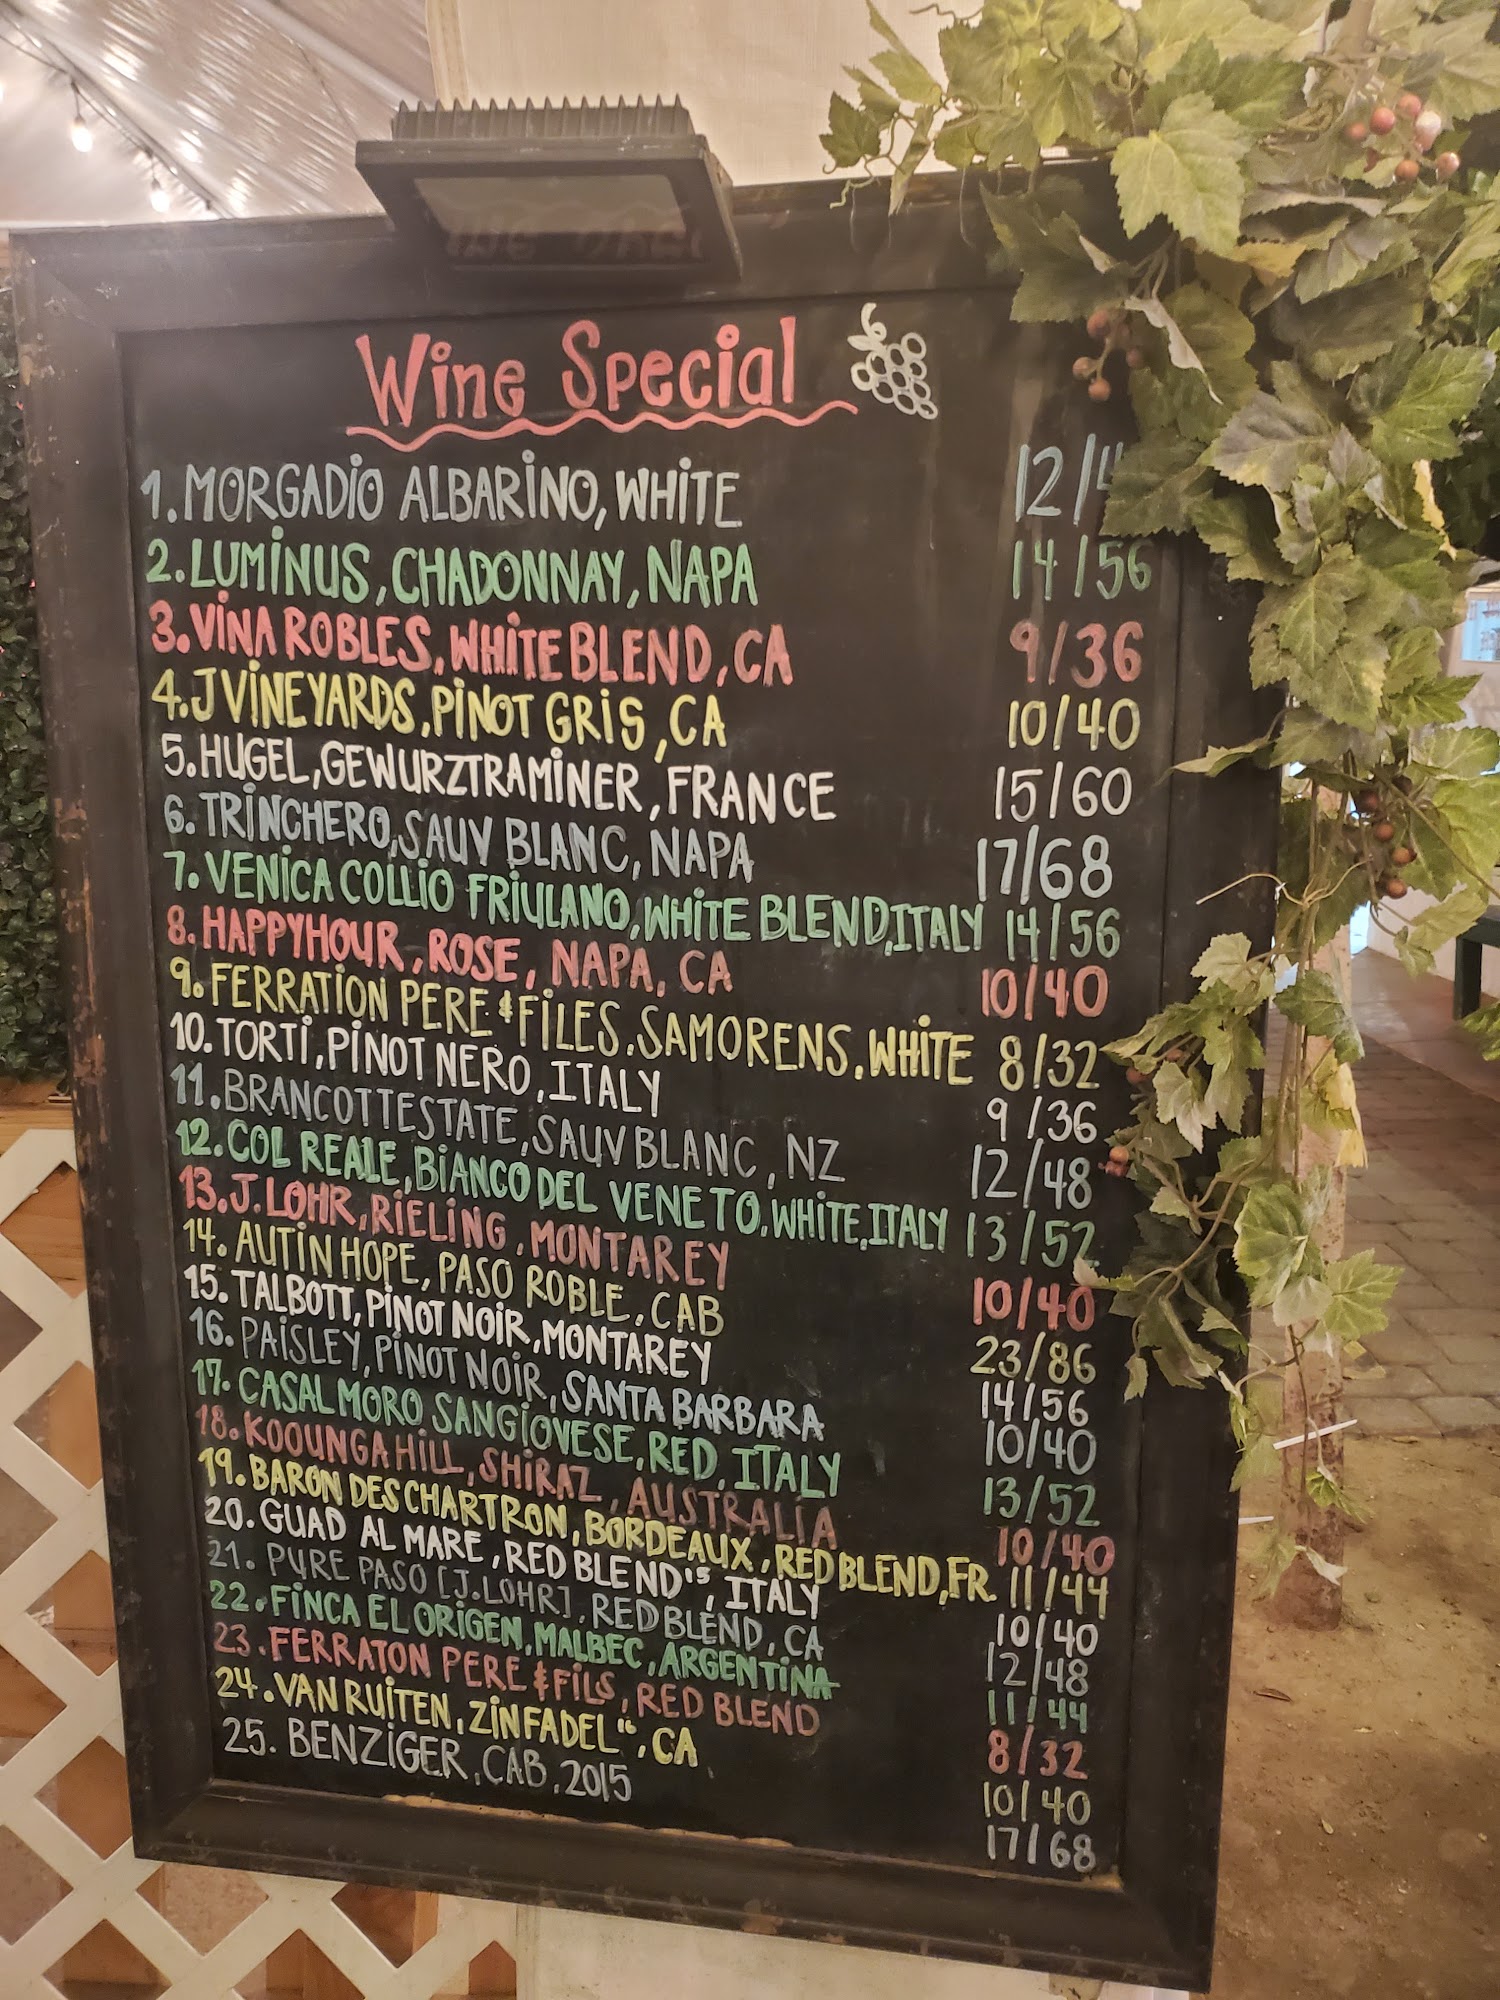 Wine Special
1. MORGADIO ALBARINO, WHITE 12/4
2. LUMINUS, CHADONNAY, NAPA 14/56
3. VINA ROBLES, WHITE BLEND, CA 9/36
4. J VINEYARDS, PINOT GRIS, CA 10/40
5. HUGEL, GEWURZTRAMINER, FRANCE 15/60
6. TRINCHERO, SAUV BLANC, NAPA 17/68
7. VENICA COLLIO FRIULANO, WHITE BLEND, ITALY 14/56
8. HAPPYHOUR, ROSE, NAPA, CA 10/40
9. FERRATION PERE & FILES, SAMORENS, WHITE 8/32
10. TORTI, PINOT NERO, ITALY 9/36
11. BRANCOTTESTATE, SAUV BLANC, NZ 12/48
12. COL REALE, BIANCO DEL VENETO, WHITE, ITALY 13/52
13. J. LOHR, RIELING, MONTAREY 10/40
14. AUTIN HOPE, PASO ROBLE, CAB 23/86
15. TALBOTT, PINOT NOIR, MONTAREY 14/56
16. PAISLEY, PINOT NOIR, SANTA BARBARA 10/40
17. CASAL MORO SANGIOVESE, RED, ITALY 13/52
18. KOOUNGA HILL, SHIRAZ, AUSTRALIA 10/40
19. BARON DES CHARTRON, BORDEAUX, RED BLEND, FR. 11/44
20. GUAD AL MARE, RED BLEND'15, ITALY 10/40
21. PURE PASO [J.LOHR], RED BLEND, CA 12/48
22. FINCA EL ORIGEN, MALBEC, ARGENTINA 11/44
23. FERRATON PERE & FILS, RED BLEND 8/32
24. VAN RUITEN, ZINFADEL "16, CA 10/40
25. BENZIGER, CAB, 2015 17/68